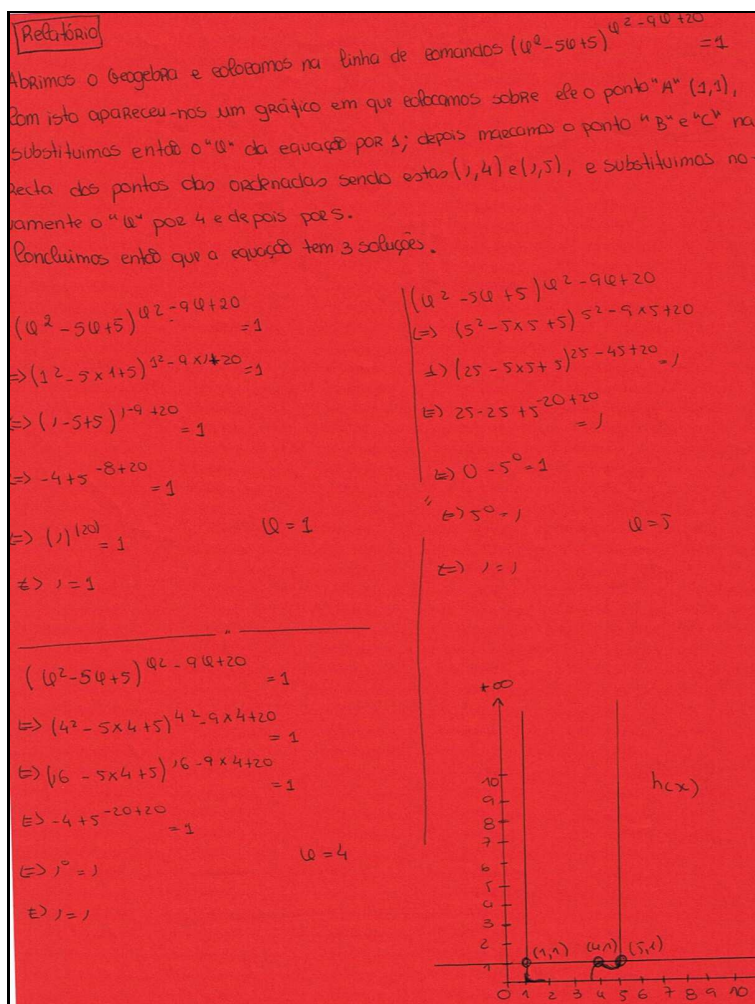 Relatório
Abrimos o Geogebra e colocamos na linha de comandos (φ²-5φ+5)^φ²-9φ+20 =1
Com isto apareceu-nos um gráfico em que colocamos sobre ele o ponto "A" (1,1),
substituimos então o "φ" da equação por 1; depois marcamos o ponto "B" e "C" na
Recta dos pontos das ordenadas sendo estas (1,4) e (1,5), e substituimos no-
vamente o "φ" por 4 e depois por 5.
Concluimos então que a equação tem 3 soluções.
(φ²-5φ+5)^φ²-9φ+20 =1
=>(1²-5×1+5)^1²-9×1+20 =1
<=>(1-5+5)^1-9+20 =1
<=> -4+5^-8+20 =1
<=> (1)^(20) =1
φ=1
<=> 1=1
(φ²-5φ+5)^φ²-9φ+20 =1
<=> (4²-5×4+5)^4²-9×4+20 =1
<=> (16-5×4+5)^16-9×4+20 =1
<=> -4+5^-20+20 =1
φ=4
<=> 1⁰=1
<=> 1=1
(φ²-5φ+5)^φ²-9φ+20
<=> (5²-5×5+5)^5²-9×5+20
<=> (25-5×5+5)^25-45+20 =1
<=> 25-25+5^-20+20 =1
<=> 0-5⁰=1
<=> 5⁰=1
φ=5
<=> 1=1
+∞
h(x)
10
9
8
7
6
5
4
3
2
1
(1,1) (4,1) (5,1)
0 1 2 3 4 5 6 7 8 9 10